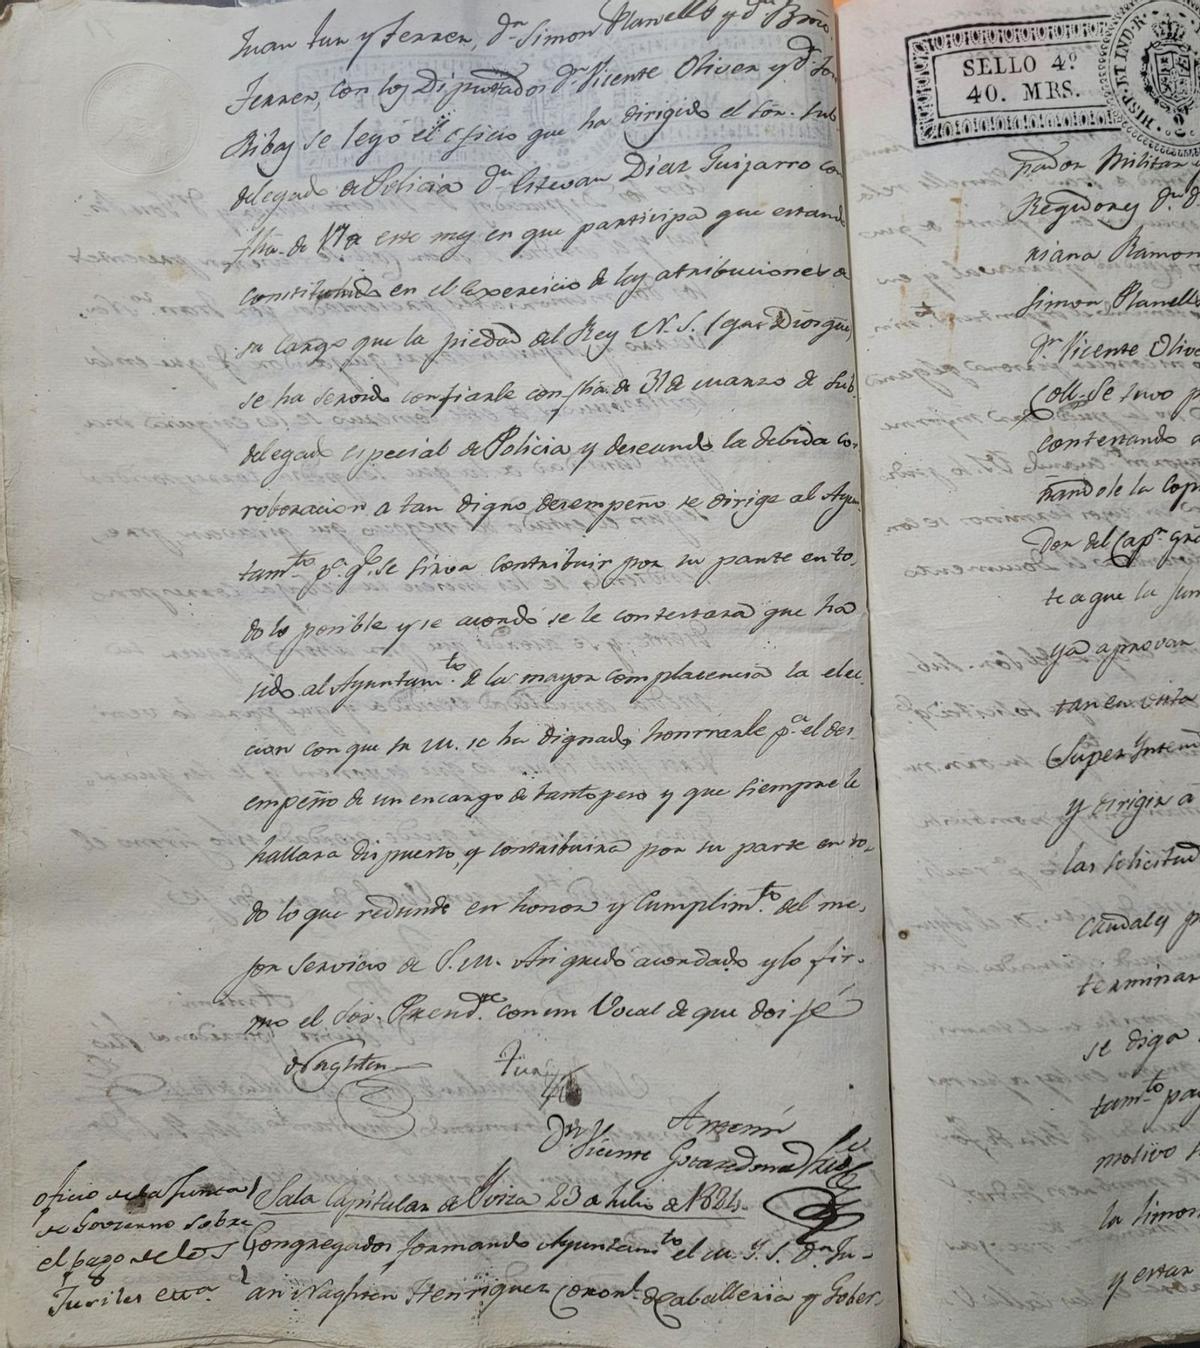 Juan Tur y Ferrer, Dn. Simon Planells y Dn. Bmé.
Ferrer, con los Diputados Dn. Vicente Oliver y Dn. Jon.
Ribas se leyó el oficio que ha dirigido el Sor. Sub-
delegado de Policia Dn. Estevan Diaz Guijarro con
fha. de 17 de este mes en que participa que estando
constituhido en el Exercicio de las atribuciones de
su cargo que la piedad del Rey N. S. (que Dios gue)
se ha servido confiarle con fha. de 31 de marzo de Sub-
delegado especial de Policia y deseando la debida co-
roboracion a tan digno desempeño se dirige al Ayun-
tamto. pa. qe. se sirva contribuir por su parte en to-
do lo posible y se acordó se le contestara que ha
sido al Ayuntamto. de la mayor complacencia la elec-
cion con que Su M. se ha dignado honrrarle pa. el des-
empeño de un encargo de tanto peso y que siempre le
hallara dispuesto, y contribuira por su parte en to-
do lo que redunde en honor y Cumplimto. del me-
jor servicio de S. M. Asi quedó acordado y lo fir-
mo el Sor. Presidte. con un Vocal de que doi fé
Naghten Tur
Antemi
Dn. Vicente Gotarredona Srio
oficio de la Junta
de Govierno sobre
el pago de los
Fusiles etta.
Sala Capitular de Iviza 23 de Julio de 1824.
Congregados formando Ayuntamto. el M. I. S. Dn. Ju-
an Naghten Henriquez Coronl. de Caballeria y Gober-
SELLO 4º
40. MRS.
HISP. ET IND. R.
nador Militar y
Regidores Dn.
riana Ramon
Simon Planells
Dn. Vicente Olive
Coll. Se tuvo p
contestando a
ñandole la Copi
dor del Capn. gra
te a que la Jun
ya aprovan
tan en vista
Super Intend
y dirigir a
las solicitud
Caudales p
terminar
se diga
tamto. pa
motivo
la limos
y estar